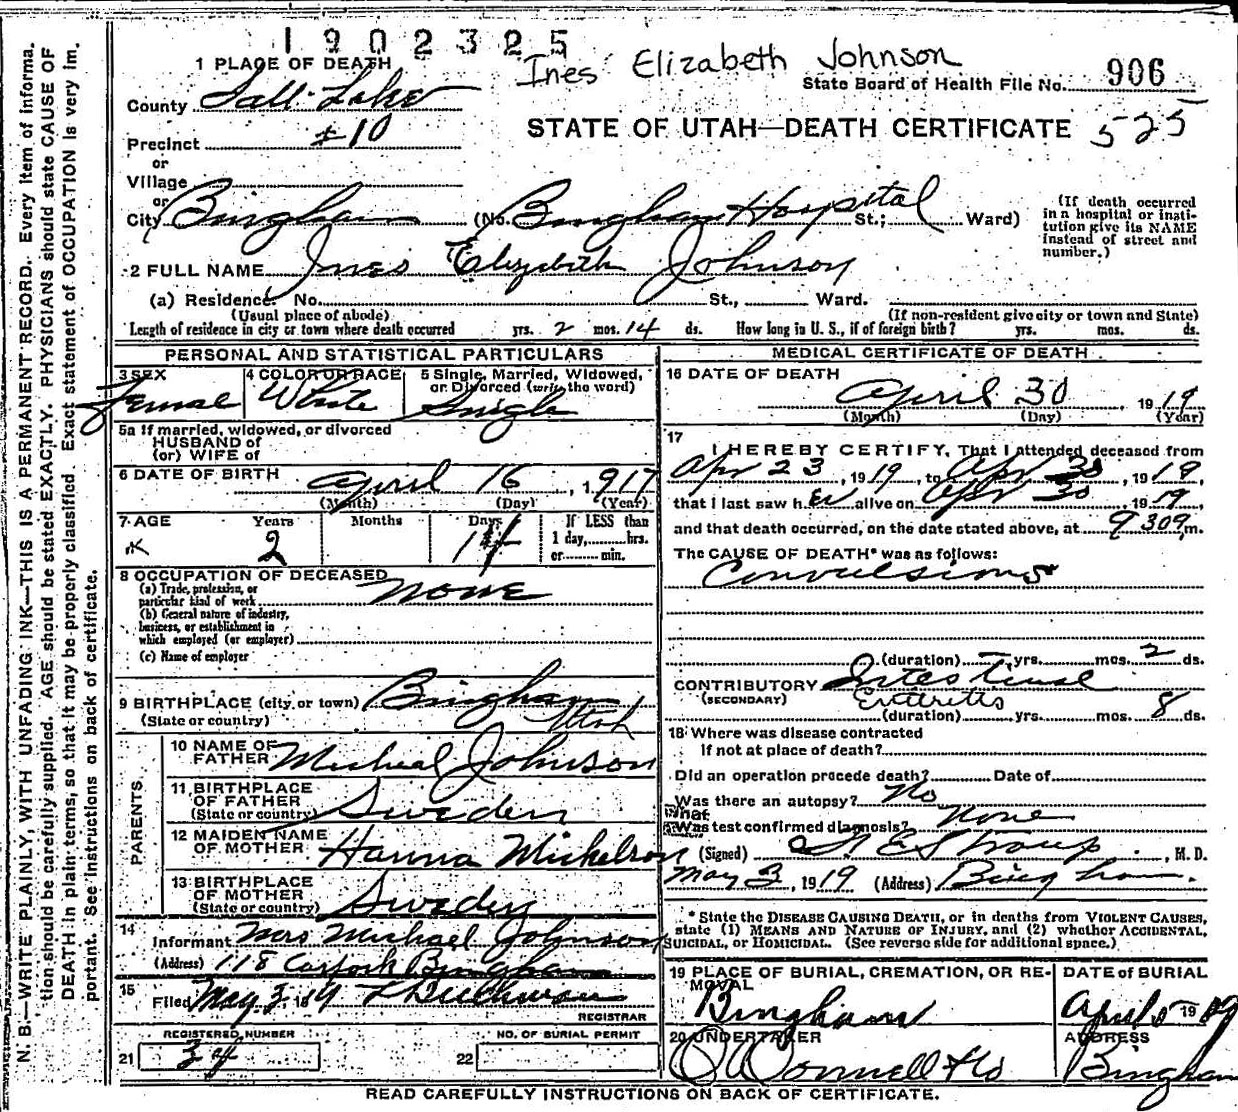 1902325
Ines Elizabeth Johnson
1 PLACE OF DEATH
State Board of Health File No. 906
County Salt Lake
STATE OF UTAH—DEATH CERTIFICATE 525
Precinct #10
or
Village
or
City Bingham (No. Bingham Hospital St.; Ward)
(If death occurred
in a hospital or insti-
tution give its NAME
instead of street and
number.)
2 FULL NAME Ines Elizabeth Johnson
(a) Residence. No. St., Ward.
(Usual place of abode) (If non-resident give city or town and State)
Length of residence in city or town where death occurred yrs. 2 mos. 14 ds. How long in U. S., if of foreign birth? yrs. mos. ds.
PERSONAL AND STATISTICAL PARTICULARS
3 SEX 4 COLOR OR RACE 5 Single, Married, Widowed,
or Divorced (write the word)
Female White Single
5a If married, widowed, or divorced
HUSBAND of
(or) WIFE of
6 DATE OF BIRTH April 16, 1917
(Month) (Day) (Year)
7 AGE Years Months Days If LESS than
1 day, hrs.
or min.
2 14
8 OCCUPATION OF DECEASED
(a) Trade, profession, or
particular kind of work None
(b) General nature of industry,
business, or establishment in
which employed (or employer)
(c) Name of employer
9 BIRTHPLACE (city or town) Bingham
(State or country) Utah
PARENTS
10 NAME OF
FATHER Micheal Johnson
11 BIRTHPLACE
OF FATHER
(State or country) Sweden
12 MAIDEN NAME
OF MOTHER Hanna Mickelson
13 BIRTHPLACE
OF MOTHER
(State or country) Sweden
14
Informant Mrs Michael Johnson
(Address) 118 Carfork Bingham
15
Filed May 3, 19
REGISTRAR
REGISTERED NUMBER NO. OF BURIAL PERMIT
21 34 22
MEDICAL CERTIFICATE OF DEATH
16 DATE OF DEATH
April 30, 1919
(Month) (Day) (Year)
17
I HEREBY CERTIFY, That I attended deceased from
Apr 23, 1919, to Apr 30, 1919,
that I last saw her alive on Apr 30 1919,
and that death occurred, on the date stated above, at 9 30 m.
The CAUSE OF DEATH* was as follows:
Convulsions
(duration) yrs. mos. 2 ds.
CONTRIBUTORY Intestinal
(SECONDARY) Enteritis
(duration) yrs. mos. 8 ds.
18 Where was disease contracted
if not at place of death?
Did an operation precede death? Date of
Was there an autopsy? No
What
test confirmed diagnosis? None
(Signed) Straup, M. D.
May 3, 1919 (Address) Bingham.
* State the DISEASE CAUSING DEATH, or in deaths from VIOLENT CAUSES,
state (1) MEANS AND NATURE OF INJURY, and (2) whether ACCIDENTAL,
SUICIDAL, or HOMICIDAL. (See reverse side for additional space.)
19 PLACE OF BURIAL, CREMATION, OR RE-
MOVAL
Bingham
DATE of BURIAL
20 UNDERTAKER ADDRESS
O'Donnell & Co Bingham
READ CAREFULLY INSTRUCTIONS ON BACK OF CERTIFICATE.
N. B.—WRITE PLAINLY, WITH UNFADING INK—THIS IS A PERMANENT RECORD. Every item of informa-
tion should be carefully supplied. AGE should be stated EXACTLY. PHYSICIANS should state CAUSE OF
DEATH in plain terms, so that it may be properly classified. Exact statement of OCCUPATION is very im-
portant. See instructions on back of certificate.